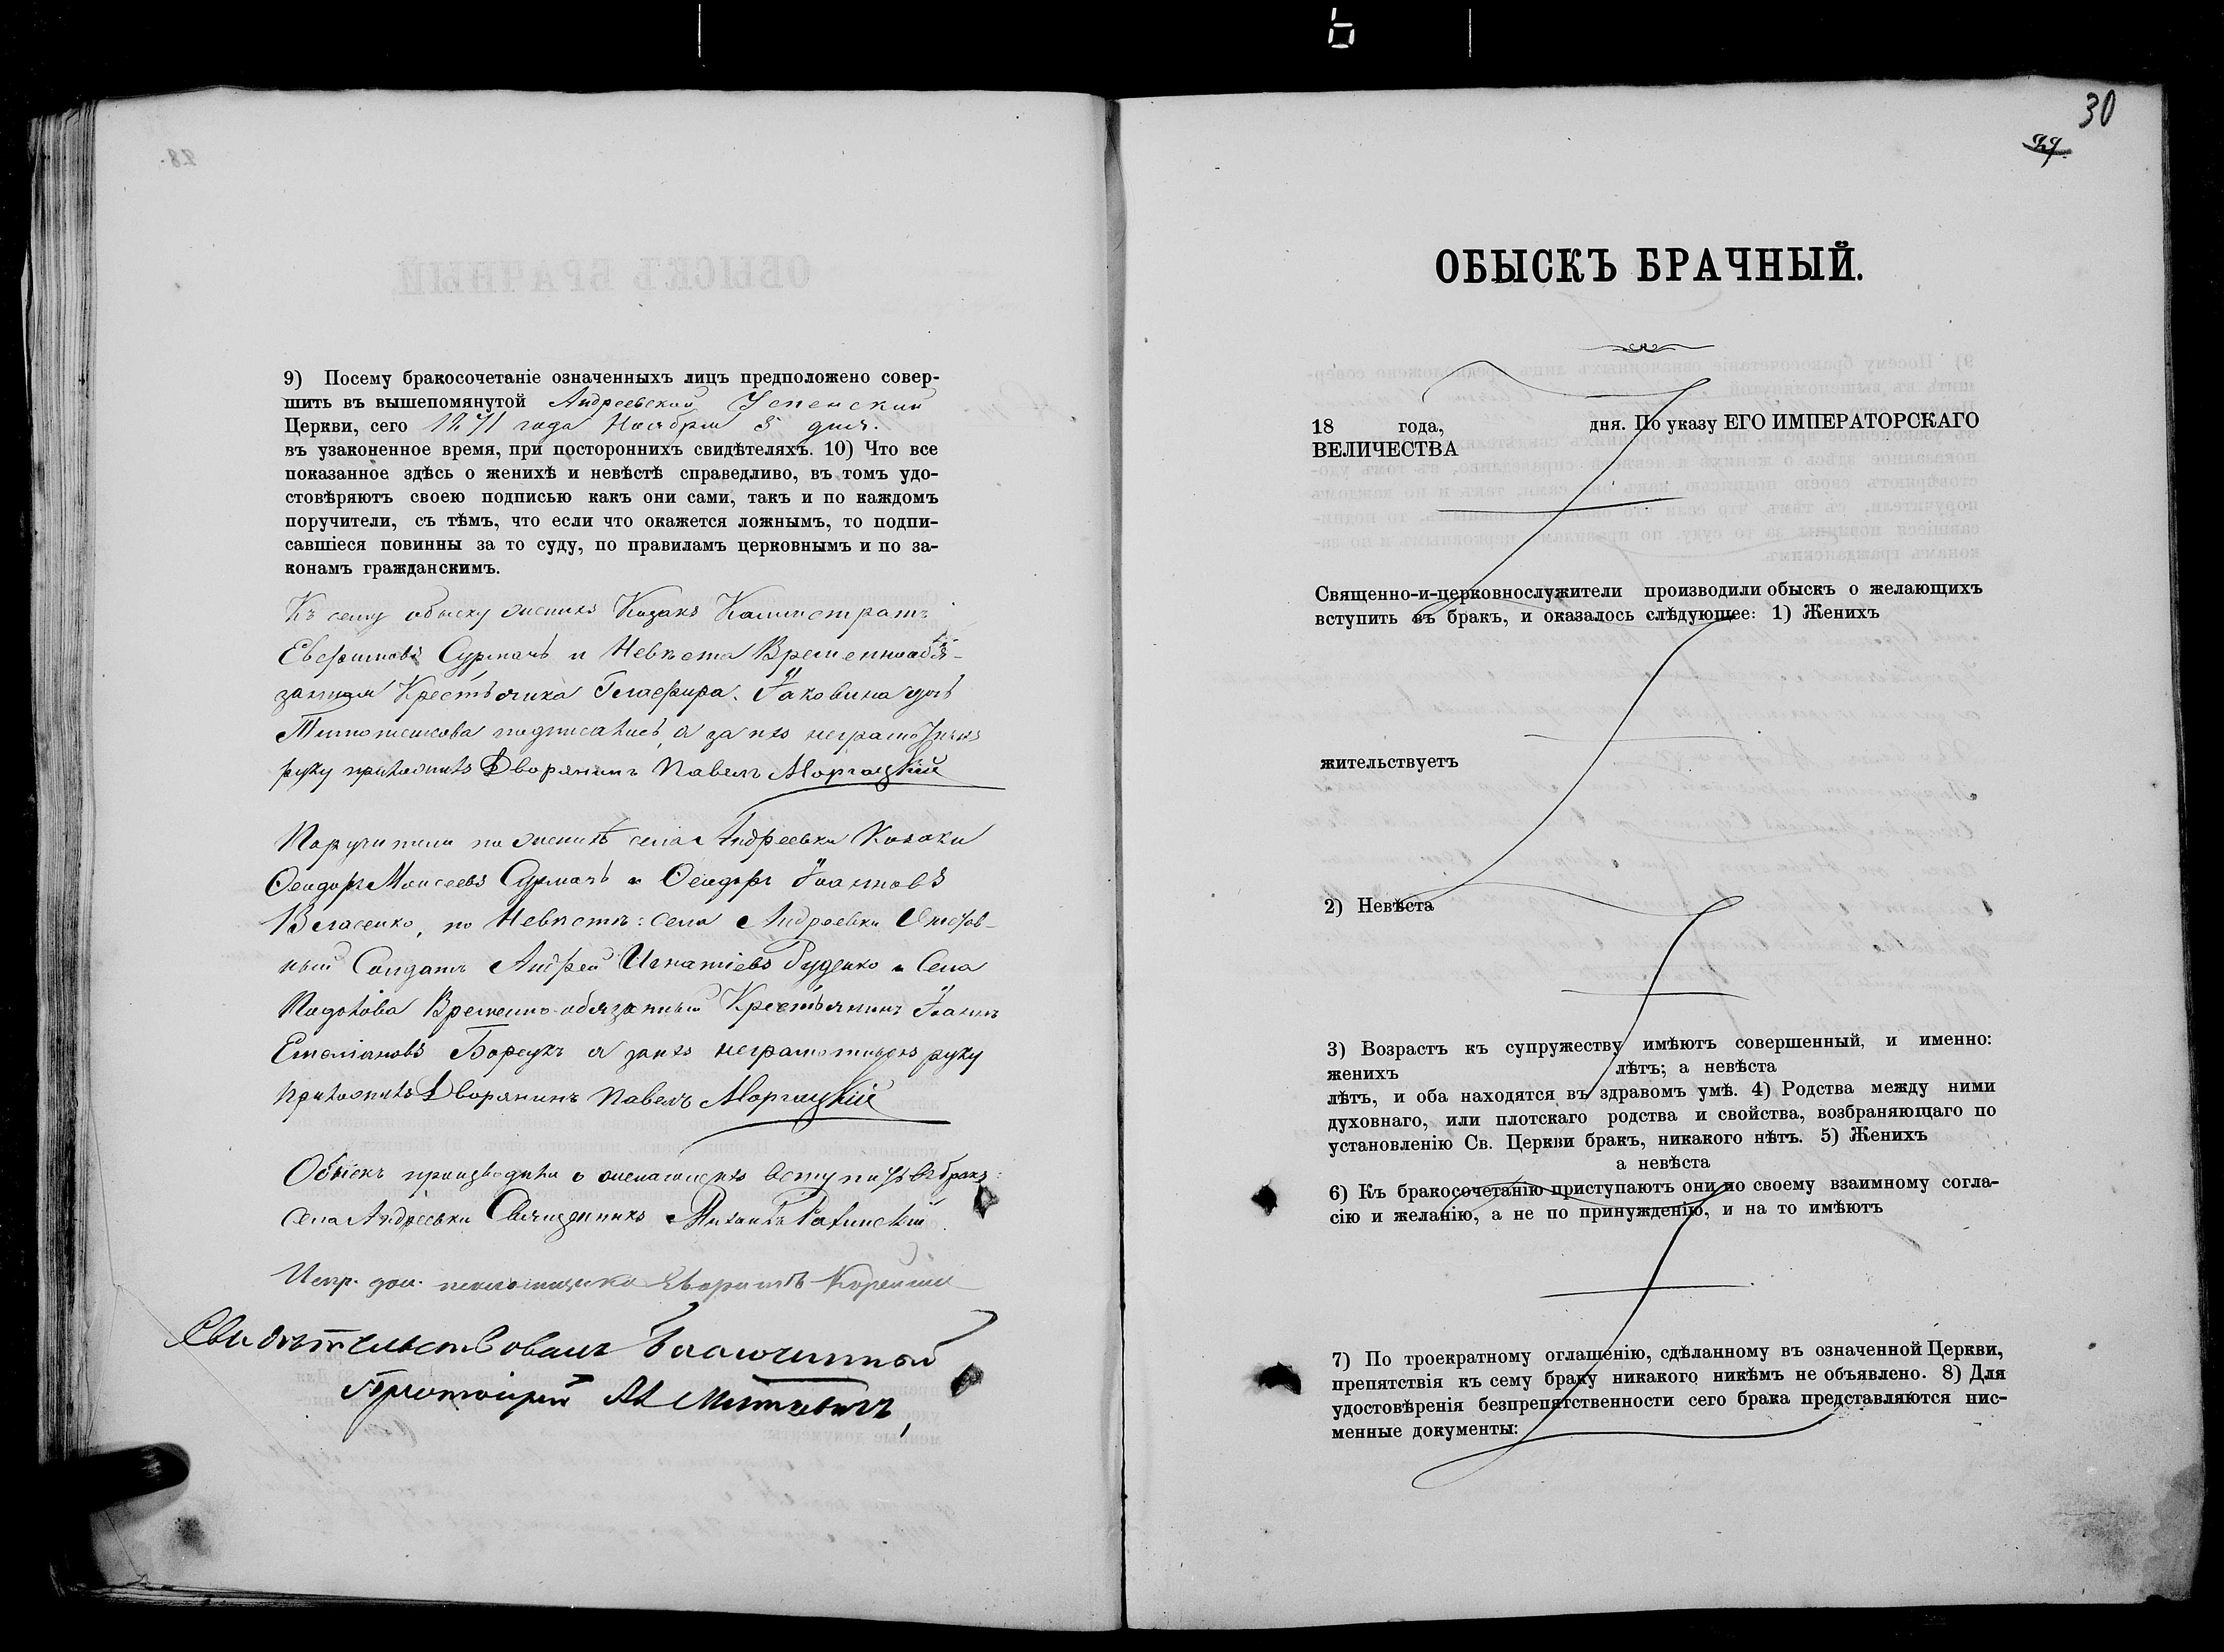 28.
9) Посему бракосочетаніе означенныхъ лицъ предположено совер-
шить въ вышепомянутой Андреевской Успенской
Церкви, сего 1871 года Ноября 5 дня.
въ узаконенное время, при постороннихъ свидѣтеляхъ. 10) Что все
показанное здѣсь о женихѣ и невѣстѣ справедливо, въ томъ удо-
стовѣряютъ своею подписью какъ они сами, такъ и по каждомъ
поручители, съ тѣмъ, что если что окажется ложнымъ, то подпи-
савшіеся повинны за то суду, по правиламъ церковнымъ и по за-
конамъ гражданскимъ.
Къ сему обыску женихъ Козакъ Калистратъ
Евфимовъ Сурмачъ и Невѣста Временнообя-
занная Крестьянка Гласфира Іаковина дочь
подписались, а за нихъ неграмотныхъ
руку приложилъ Дворянинъ Павелъ
Поручители по женихѣ села Андреевки Козаки
Ѳеодоръ Моисеевъ Сурмачъ и Ѳеодоръ Іоанновъ
Власенко, по Невѣстѣ: села Андреевки
Солдатъ Андрей Игнатіевъ Руденко и Села
Временно-обязанный Крестьянинъ Іоаннъ
Емеліановъ а за нихъ неграмотныхъ руку
приложилъ Дворянинъ Павелъ
Обыскъ производили о желающихъ вступить въ бракъ:
села Андреевки Священникъ Михаилъ
Испр. дол.
Свидѣтельствовалъ Благочинный
Протоіерей
30
29.
ОБЫСКЪ БРАЧНЫЙ.
18 года, дня. По указу ЕГО ИМПЕРАТОРСКАГО
ВЕЛИЧЕСТВА
Священно-и-церковнослужители производили обыскъ о желающихъ
вступить въ бракъ, и оказалось слѣдующее: 1) Женихъ
жительствуетъ
2) Невѣста
3) Возрастъ къ супружеству имѣютъ совершенный, и именно:
женихъ лѣтъ; а невѣста
лѣтъ, и оба находятся въ здравомъ умѣ. 4) Родства между ними
духовнаго, или плотскаго родства и свойства, возбраняющаго по
установленію Св. Церкви бракъ, никакого нѣтъ. 5) Женихъ
а невѣста
6) Къ бракосочетанію приступаютъ они по своему взаимному согла-
сію и желанію, а не по принужденію, и на то имѣютъ
7) По троекратному оглашенію, сдѣланному въ означенной Церкви,
препятствія къ сему браку никакого никѣмъ не объявлено. 8) Для
удостовѣренія безпрепятственности сего брака представляются пис-
менные документы: